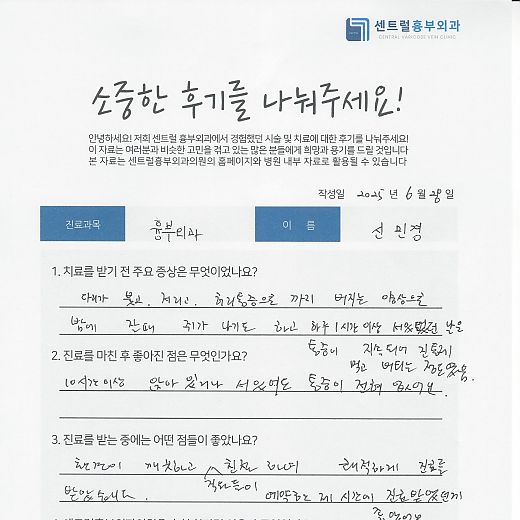 센트럴흉부외과
CENTRAL VARICOSE VEIN CLINIC
소중한 후기를 나눠주세요!
안녕하세요! 저희 센트럴 흉부외과에서 경험했던 시술 및 치료에 대한 후기를 나눠주세요!
이 자료는 여러분과 비슷한 고민을 겪고 있는 많은 분들에게 희망과 용기를 드릴 것입니다
본 자료는 센트럴흉부외과의원의 홈페이지와 병원 내부 자료로 활용될 수 있습니다
작성일 2025 년 6 월 28 일
진료과목 흉부외과 이 름 신민경
1. 치료를 받기 전 주요 증상은 무엇이었나요?
다리가 붓고, 저리고, 허리통증으로 까지 번지는 양상으로
밤에 잘때 쥐가 나기도 하고 하루 1시간 이상 서있었던 날은
통증이 지속되어 진통제
먹고 버티는 정도였음.
2. 진료를 마친 후 좋아진 점은 무엇인가요?
10시간 이상 앉아 있거나 서있어도 통증이 전혀 없어요.
3. 진료를 받는 중에는 어떤 점들이 좋았나요?
환경이 깨끗하고 직원들이 친절하며 쾌적하게 진료를
받았습니다. 예약하는 제 시간에 진료받았던게
좋았어요